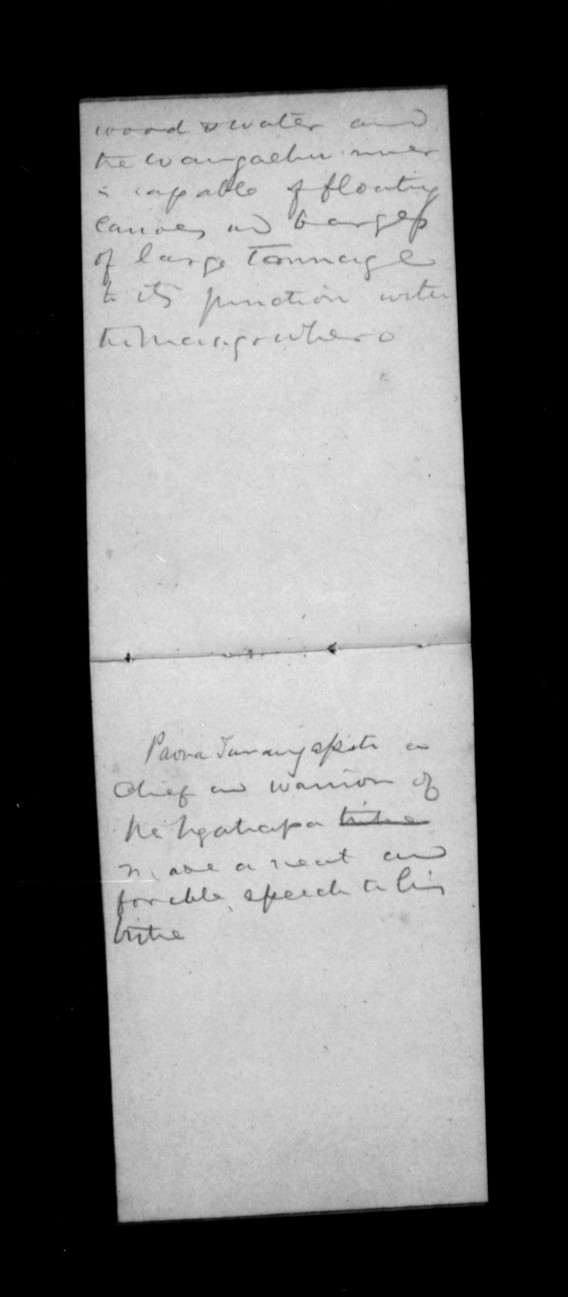 wood & water and
the Wangaehu river
is capable of floating
Canoes and barges
of large Tonnage
to its junction with
the Mangowhero
Paora Turangapito a
Chief and warrior of
the Ngatiapa ~~tribe~~
made a neat and
forcible speech to his
tribe